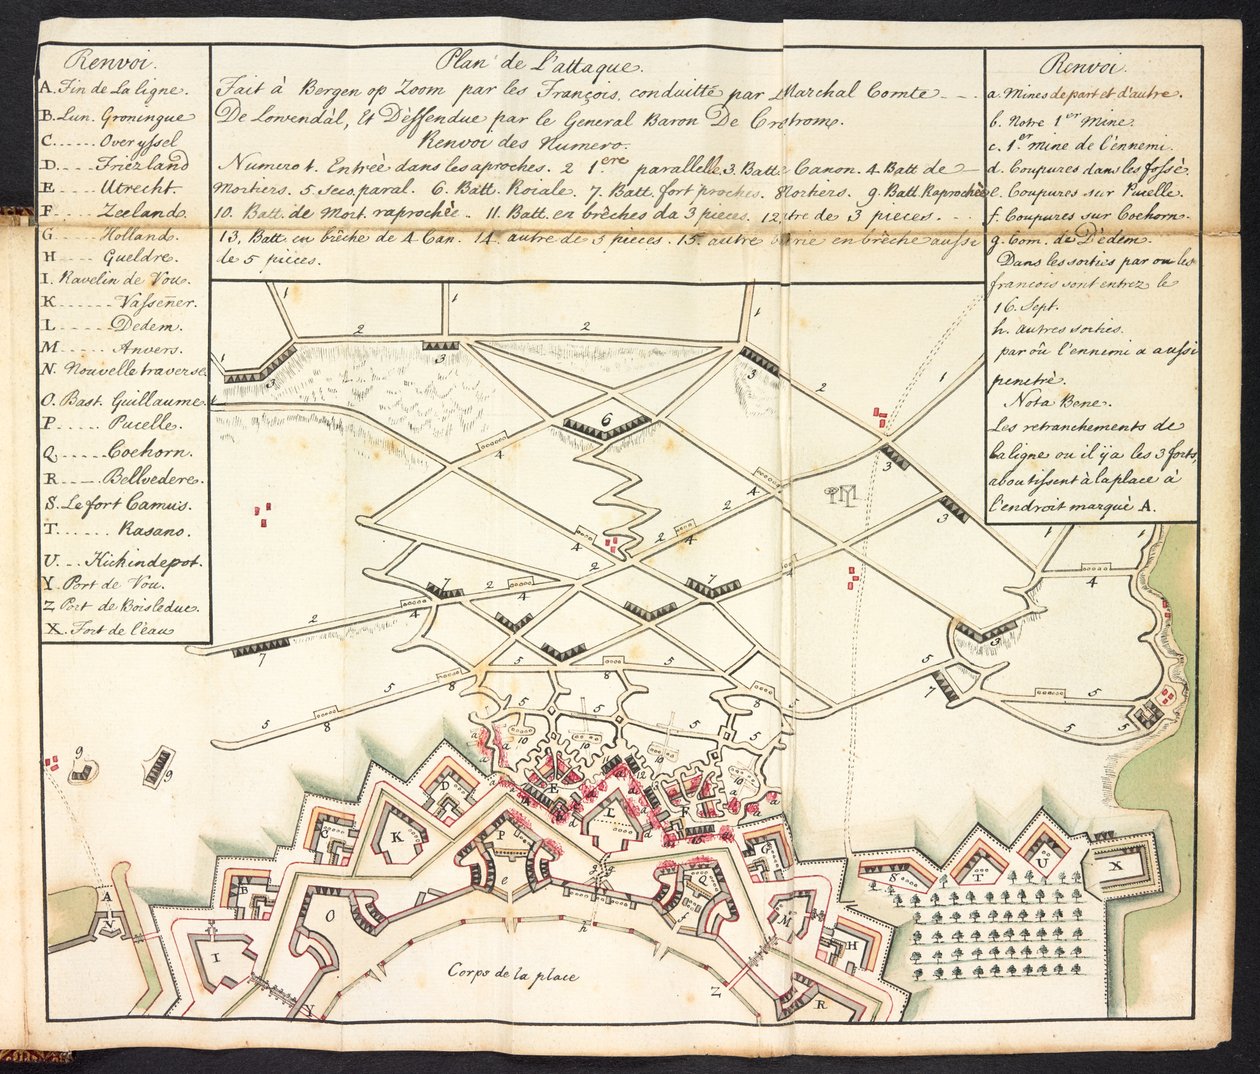 Renvoi.
A. Fin de La ligne.
B. Lun. Groningue
C. Overyssel
D. Friezland
E. Utrecht
F. Zeeland.
G. Holland.
H. Gueldre.
I. Ravelin de Vou.
K. Vassener.
L. Dedem.
M. Anvers.
N. Nouvelle traverse
O. Bast. Guillaume.
P. Pucelle.
Q. Coehorn.
R. Bellvedere.
S. Le fort Camuis.
T. Rasano.
U. Kickindepot.
Y. Port de Vou.
Z Port de Boisleduc.
X. Fort de l'eau
Plan de L'attaque.
Fait à Bergen op Zoom par les François, conduitte par Marchal Comte
De Lonvendal, Et Déffendue par le General Baron De Crstrom.
Renvoi des Numero.
Numero 1. Entrée dans les aproches. 2 1ere parallelle, 3. Batt. Canon. 4. Batt de
Mortiers. 5. Seco paral. 6. Batt. Roiale. 7. Batt. fort proches. 8 Mortiers. 9. Batt. Raprochée
10. Batt. de Mort. raprochée. 11. Batt. en brêches da 3 pieces. 12 utre de 3 pieces.
13, Batt en brêche de 4 Can. 14. autre de 5 pieces. 15. autre en brêche aussi
de 5 pieces.
Renvoi.
a. Mines de part et d'autre.
b. Notre 1er Mine.
c. 1er mine de l'ennemi.
d. Coupures dans les fossé.
e. Coupures sur Pucelle.
f. Coupures sur Coehorn.
g. Com. de Dedem.
Dans les sorties par ou les
francois sont entrez le
16. Sept.
h. autres sorties.
par oû l'ennemi a aussi
penetré.
Nota Bene.
Les retranchements de
la ligne ou il ÿa les 3 forts,
aboutissent à la place à
l'endroit marqué A.
Corps de la place